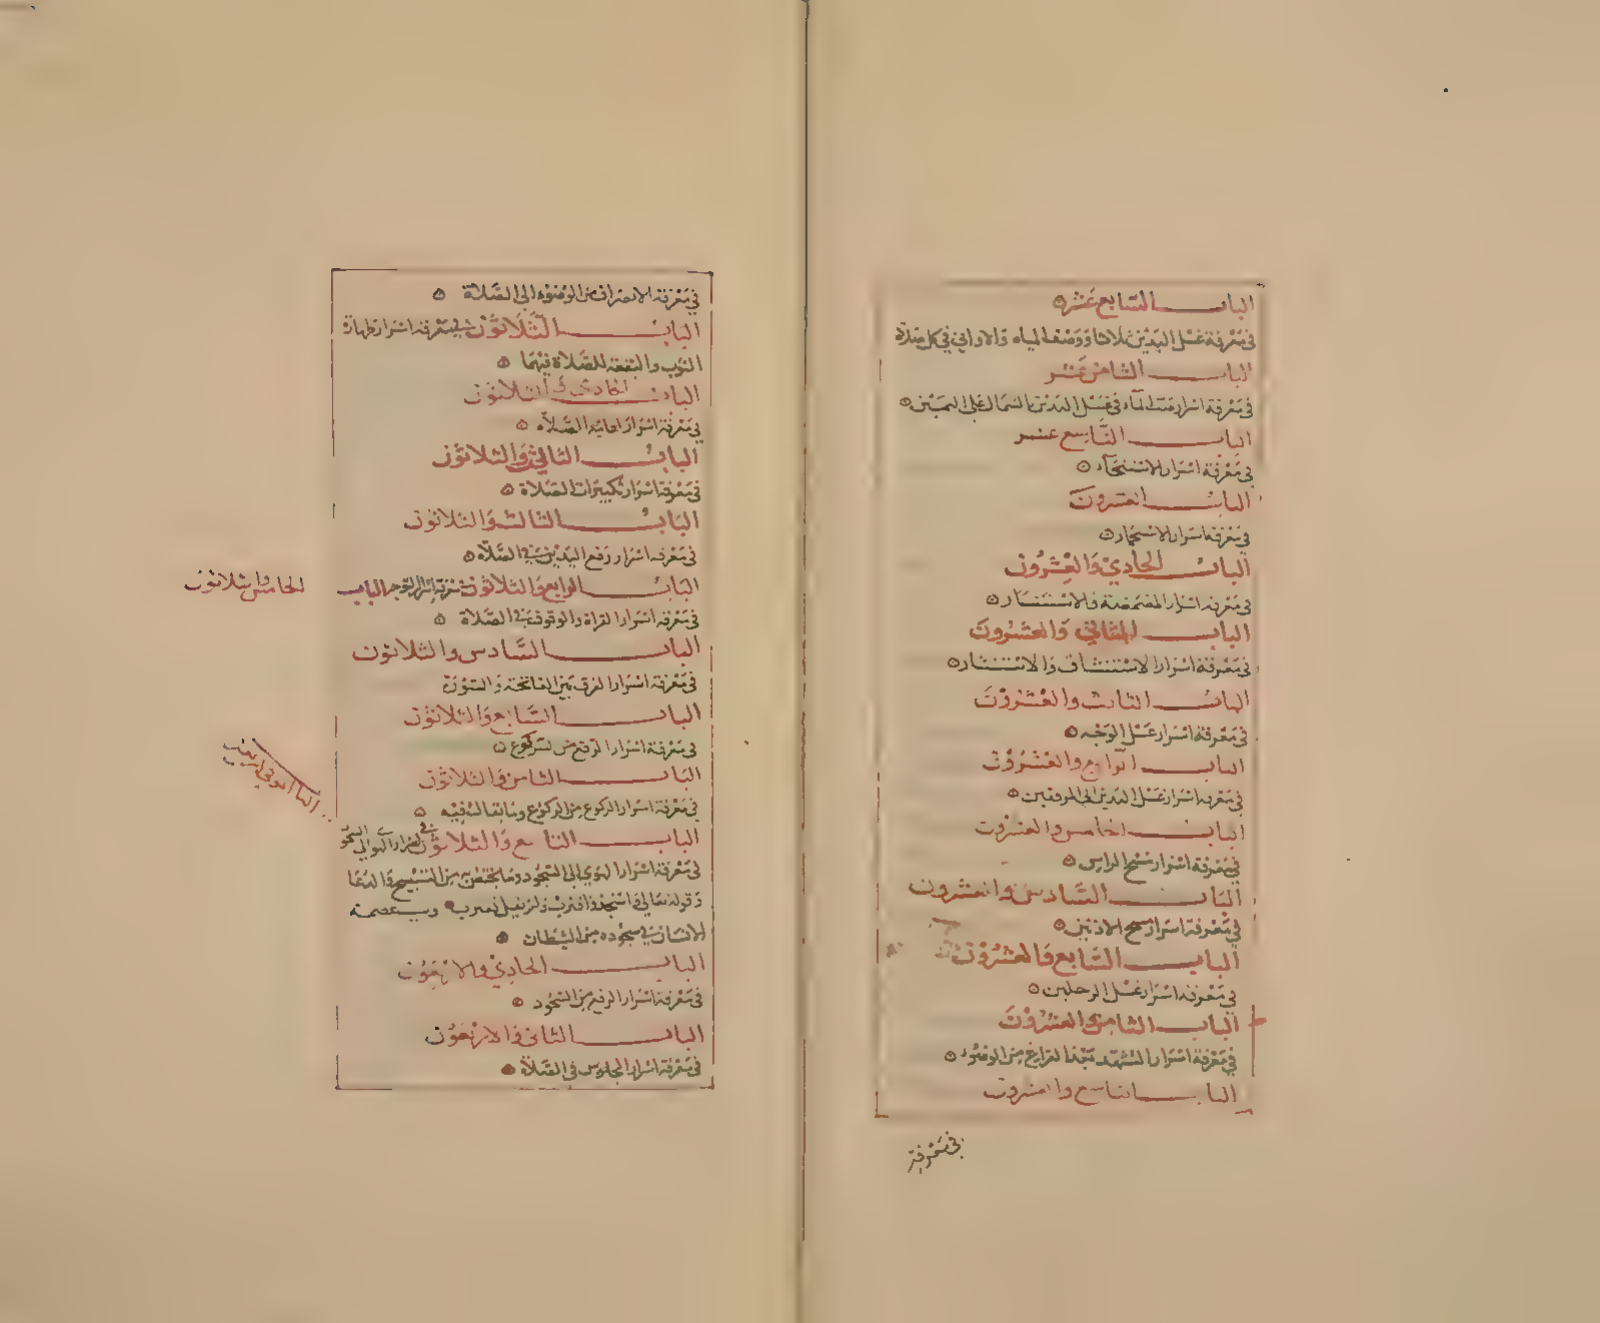 الباب السابع عشر
في معرفة غسل اليدين ثلاثا ووصفه المياه والاواني في كل صلاة
الباب الثامن عشر
في معرفة اسرار صب الماء في غسل اليدين بالشمال على اليمين
الباب التاسع عشر
في معرفة اسرار الاستنجاء
الباب العشرون
في معرفة اسرار الاستجمار
الباب الحادي والعشرون
في معرفة اسرار المضمضة والاستنثار
الباب الثاني والعشرون
في معرفة اسرار الاستنشاق والاستنثار
الباب الثالث والعشرون
في معرفة اسرار غسل الوجه
الباب الرابع والعشرون
في معرفة اسرار غسل اليدين الى المرفقين
الباب الخامس والعشرون
في معرفة اسرار مسح الراس
الباب السادس والعشرون
في معرفة اسرار مسح الاذنين
الباب السابع والعشرون
في معرفة اسرار غسل الرجلين
الباب الثامن والعشرون
في معرفة اسرار التشهد بعد الفراغ من الوضوء
الباب التاسع والعشرون
في معرفة
في معرفة الانصراف من الوضوء الى الصلاة
الباب الثلاثون في معرفة اسرار طهارة
الثوب والبقعة للصلاة فيهما
الباب الحادي والثلاثون
في معرفة اسرار اقامة الصلاة
الباب الثاني والثلاثون
في معرفة اسرار تكبيرات الصلاة
الباب الثالث والثلاثون
في معرفة اسرار رفع اليدين في الصلاة
الباب الرابع والثلاثون في معرفة اسرار التوجه الباب الخامس والثلاثون
في معرفة اسرار القراة والوقوف في الصلاة
الباب السادس والثلاثون
في معرفة اسرار الفرق بين الفاتحة والسورة
الباب السابع والثلاثون
في معرفة اسرار الركوع
الباب الثامن والثلاثون
في معرفة اسرار الركوع من الركوع وما يقال فيه
الباب التاسع والثلاثون في اسرار
الباب
في معرفة اسرار الهوي الى السجود وما يختص به من التسبيح والدعا
وقوله تعالى واسجد واقترب ولم
الانسان في سجوده من الشيطان
الباب الحادي والاربعون
في معرفة اسرار الرفع من السجود
الباب الثاني والاربعون
في معرفة اسرار الجلوس في الصلاة